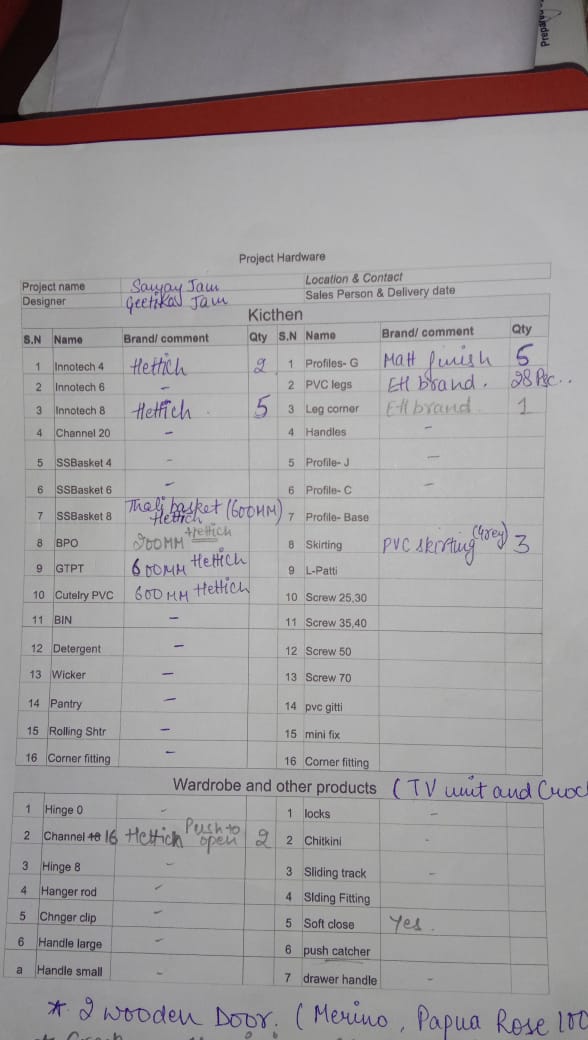 Prepared
Project Hardware
Project name Sanjay Jain Location & Contact
Designer Geetika Jain Sales Person & Delivery date
Kicthen
S.N Name Brand/ comment Qty S.N Name Brand/ comment Qty
1 Innotech 4 Hettich 2 1 Profiles- G Matt finish 5
2 Innotech 6 - 2 PVC legs Ett brand. 28 Psc..
3 Innotech 8 Hettich. 5 3 Leg corner Ett brand 1
4 Channel 20 - 4 Handles -
5 SSBasket 4 - 5 Profile- J -
6 SSBasket 6 - 6 Profile- C -
7 SSBasket 8 Thali basket (600MM) Hettich 7 Profile- Base
8 BPO 200MM Hettich 8 Skirting PVC skirting (Grey) 3
9 GTPT 600MM Hettich 9 L-Patti
10 Cutelry PVC 600 MM Hettich 10 Screw 25,30
11 BIN - 11 Screw 35,40
12 Detergent - 12 Screw 50
13 Wicker - 13 Screw 70
14 Pantry - 14 pvc gitti
15 Rolling Shtr - 15 mini fix
16 Corner fitting - 16 Corner fitting
Wardrobe and other products (TV unit and Croc
1 Hinge 0 - 1 locks -
2 Channel 18 16 Hettich Push to open 2 2 Chitkini -
3 Hinge 8 - 3 Sliding track -
4 Hanger rod - 4 Slding Fitting
5 Chnger clip - 5 Soft close Yes.
6 Handle large - 6 push catcher
a Handle small - 7 drawer handle -
* 2 wooden Door. (Merino, Papua Rose 100